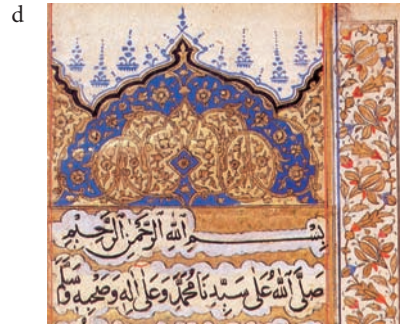 d
بِسْمِ اللَّهِ الرَّحْمَنِ الرَّحِيمِ
صَلَّى اللَّهُ عَلَى سَيِّدِنَا مُحَمَّدٍ وَعَلَى آلِهِ وَصَحْبِهِ وَسَلَّمَ